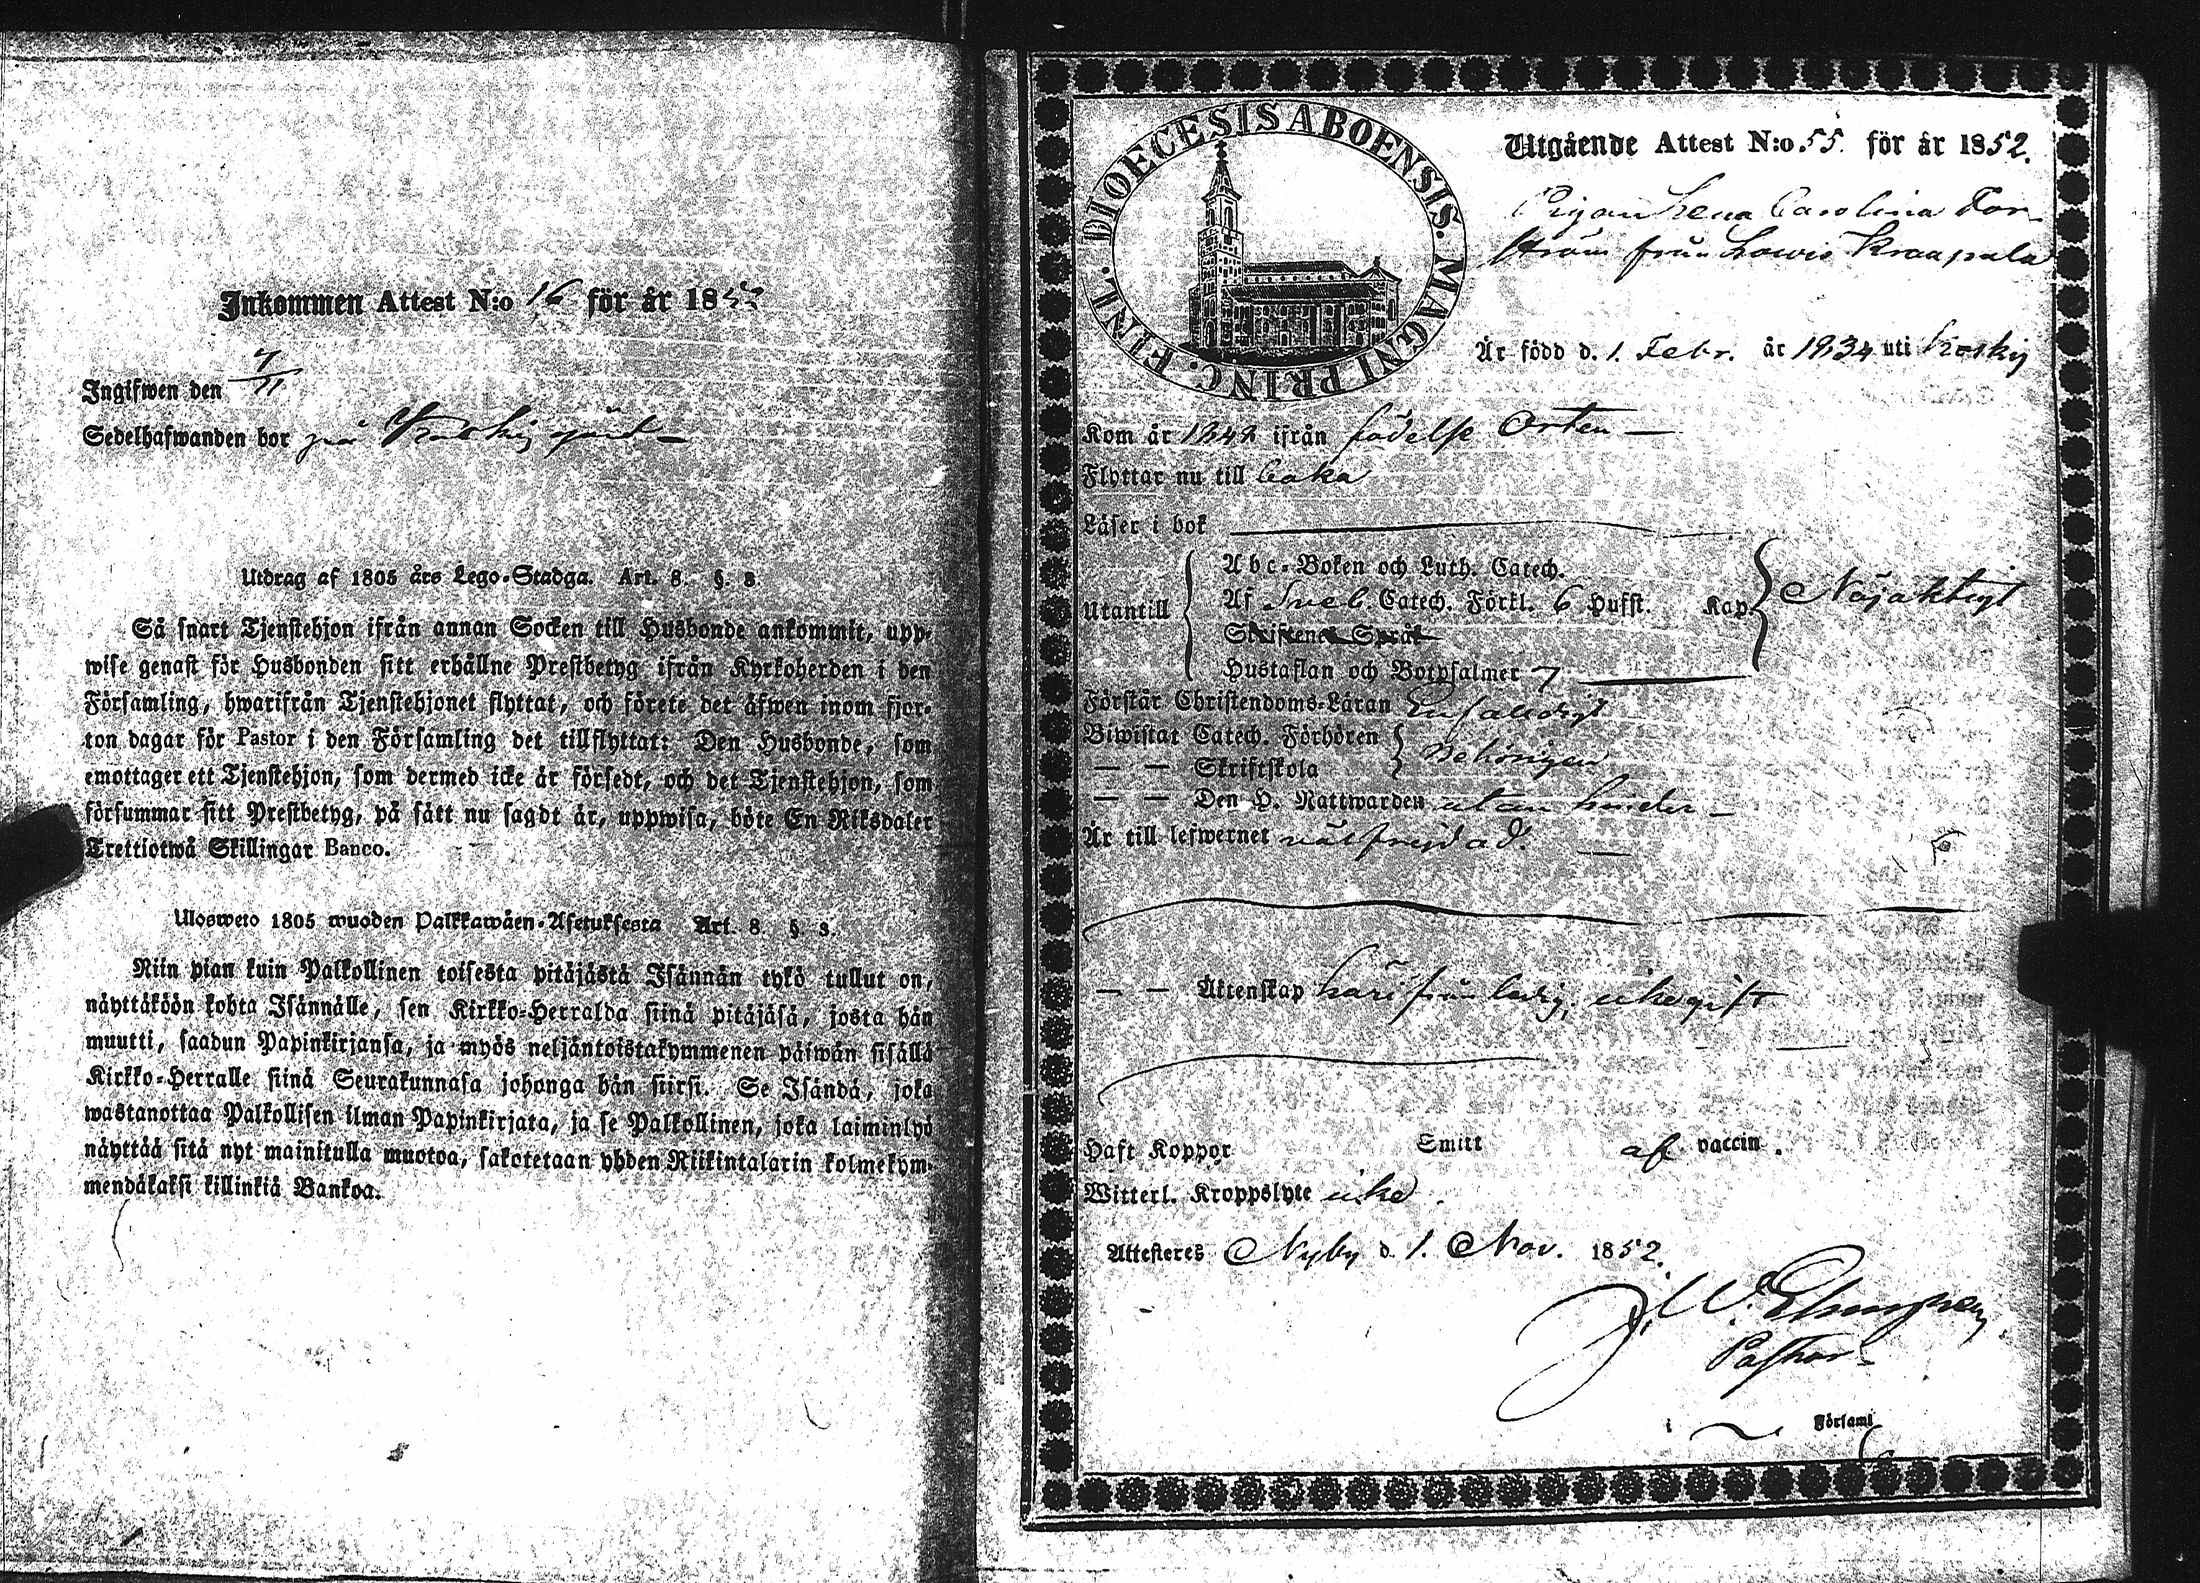 Inkommen Attest N:o 16 för år 1852
Ingifwen den 7/11
Sedelhafwanden bor på Koskis gård
Utdrag af 1805 års Lego-Stadga. Art. 8. §. 8.
Så snart Tjenstehjon ifrån annan Socken till Husbonde ankommit, upp-
wise genast för Husbonden sitt erhållne Prestbetyg ifrån Kyrkoherden i den
Församling, hwarifrån Tjenstehjonet flyttat, och förete det äfwen inom fjor-
ton dagar för Pastor i den Församling det tillflyttat: Den Husbonde, som
emottager ett Tjenstehjon, som dermed icke är försedt, och det Tjenstehjon, som
försummar sitt Prestbetyg, på sätt nu sagdt är, uppwisa, böte En Riksdaler
Trettiotwå Skillingar Banco.
Ulosweto 1805 wuoden Palkkawäen-Asetuksesta Art. 8. §. 8.
Niin pian kuin Palkollinen toisesta pitäjästä Isännän tykö tullut on,
näyttäköön kohta Isännälle, sen Kirkko-Herralda siinä pitäjäsä, josta hän
muutti, saadun Papinkirjansa, ja myös neljäntoistakymmenen päiwän sisällä
Kirkko-Herralle siinä Seurakunnasa johonga hän siirsi. Se Isändä, joka
wastanottaa Palkollisen ilman Papinkirjata, ja se Palkollinen, joka laiminlyö
näyttää sitä nyt mainitulla muotoa, sakotetaan yhden Riikintalarin kolmekym-
mendäkaksi killinkiä Bankoa.
DIOECESIS ABOENSIS. MAGNI PRINC. FINL.
Utgående Attest N:o 55. för år 1852.
Pigan Lena Carolina For-
ström från Lowis Kraapala
Är född d. 1. Febr. år 1834 uti Koskis
Kom år 1842 ifrån födelse Orten
Flyttar nu till
Läser i bok
Utantill
Abc-Boken och Luth. Catech.
Af Sveb. Catech. Förkl. 6 Hufst. Kap. Nöjaktigt
Skriftenes Språk
Hustaflan och Botpsalmer 7
Förstår Christendoms-Läran Enfaldigt
Biwistat Catech. Förhören
— — Skriftskola behörigen
— — Den H. Nattwarden utan hinder
Är till lefwernet välfrejdad.
— — Äktenskap härifrån ledig, icke gift
Haft Koppor Smitt af vaccin.
Witterl. Kroppslyte icke.
Attesteres Nyby d. 1. Nov. 1852.
J. W.
Pastor
i Församl